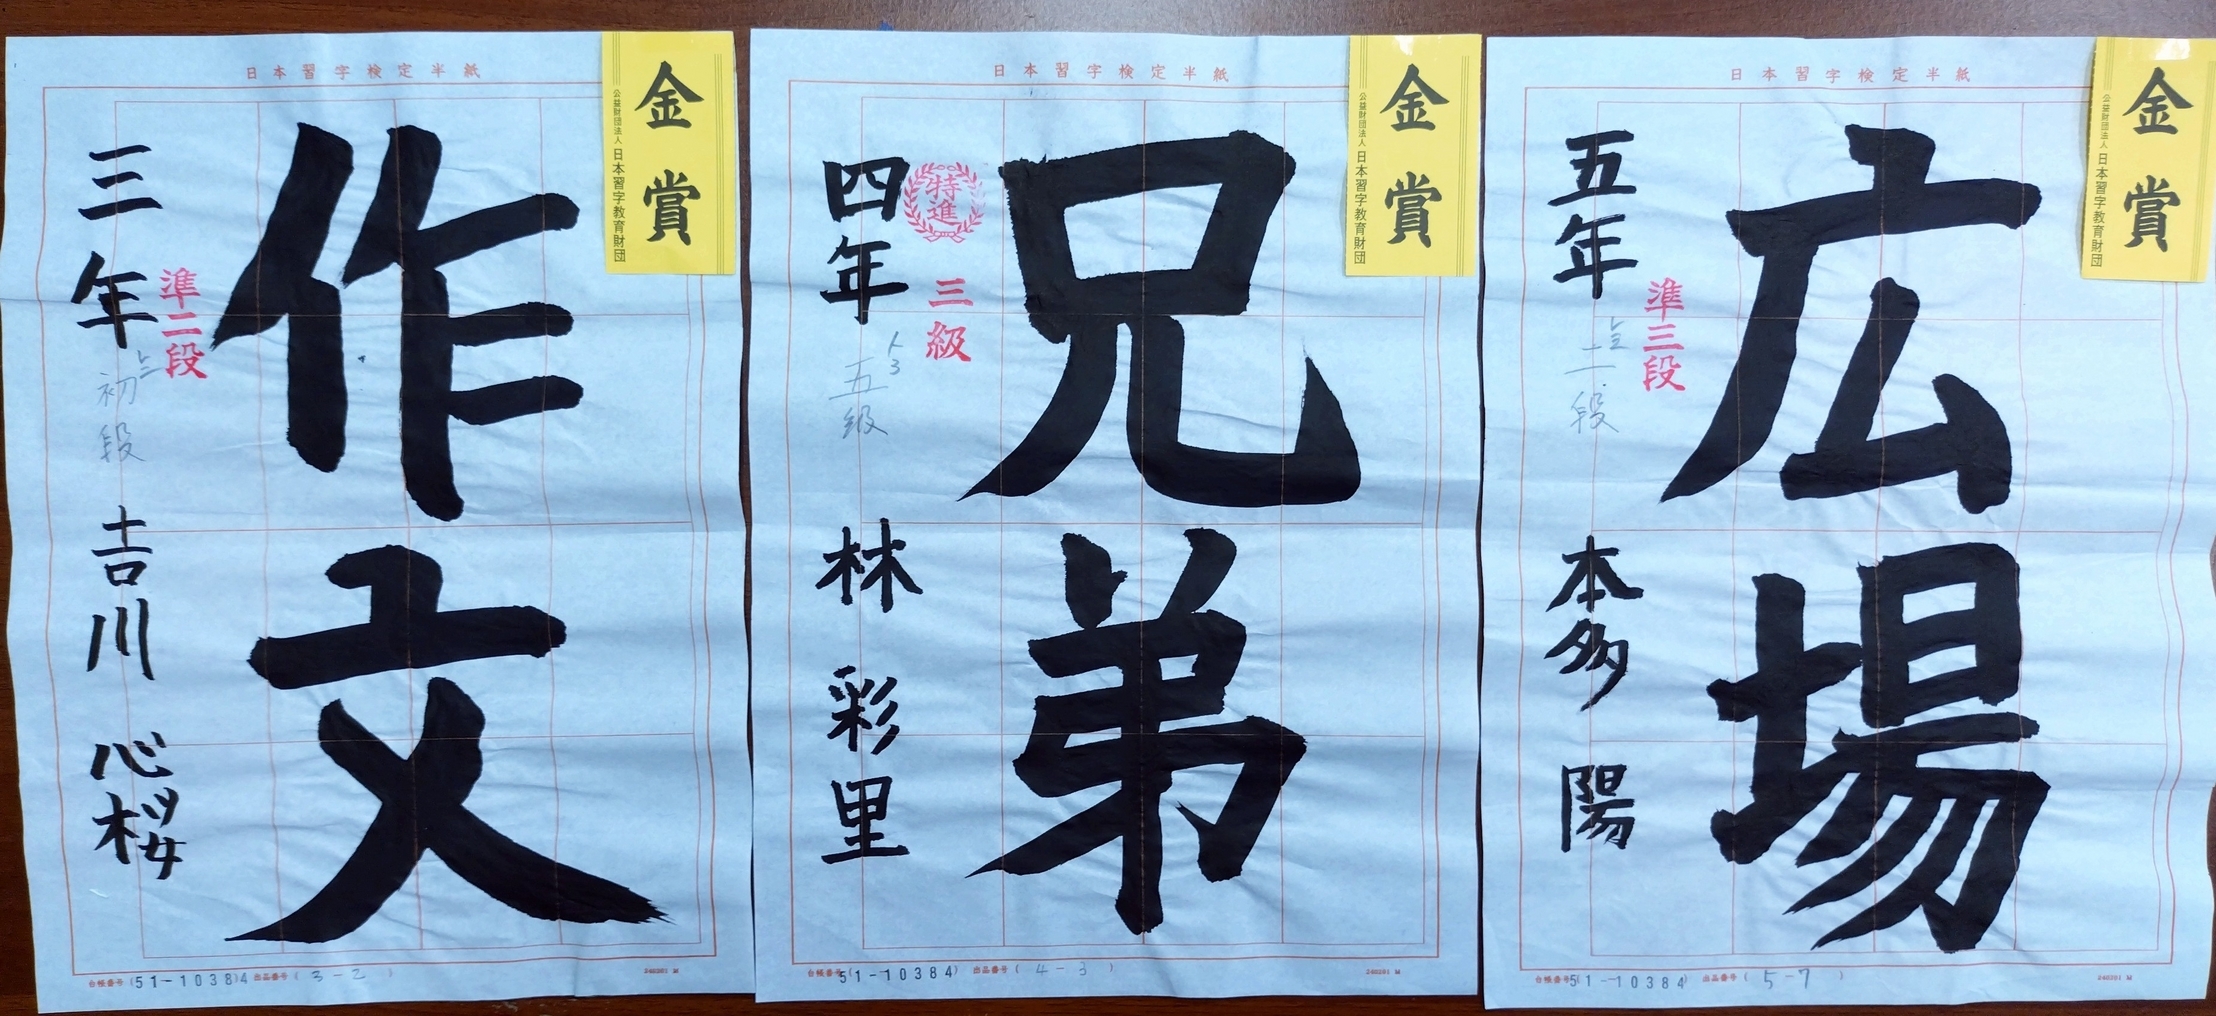 日本習字検定半紙
金賞
公益財団法人 日本習字教育財団
作文
準二段
三年 吉川 心桜
上三
初段
台帳番号 (51-10384) 出品番号 (3-2)
240201 M
日本習字検定半紙
金賞
公益財団法人 日本習字教育財団
兄弟
特進
三級
四年 林 彩里
五級
台帳番号 (51-10384) 出品番号 (4-3)
240201 M
日本習字検定半紙
金賞
公益財団法人 日本習字教育財団
広場
準三段
五年 本多 陽
二段
台帳番号 (51-10384) 出品番号 (5-7)
240201 M